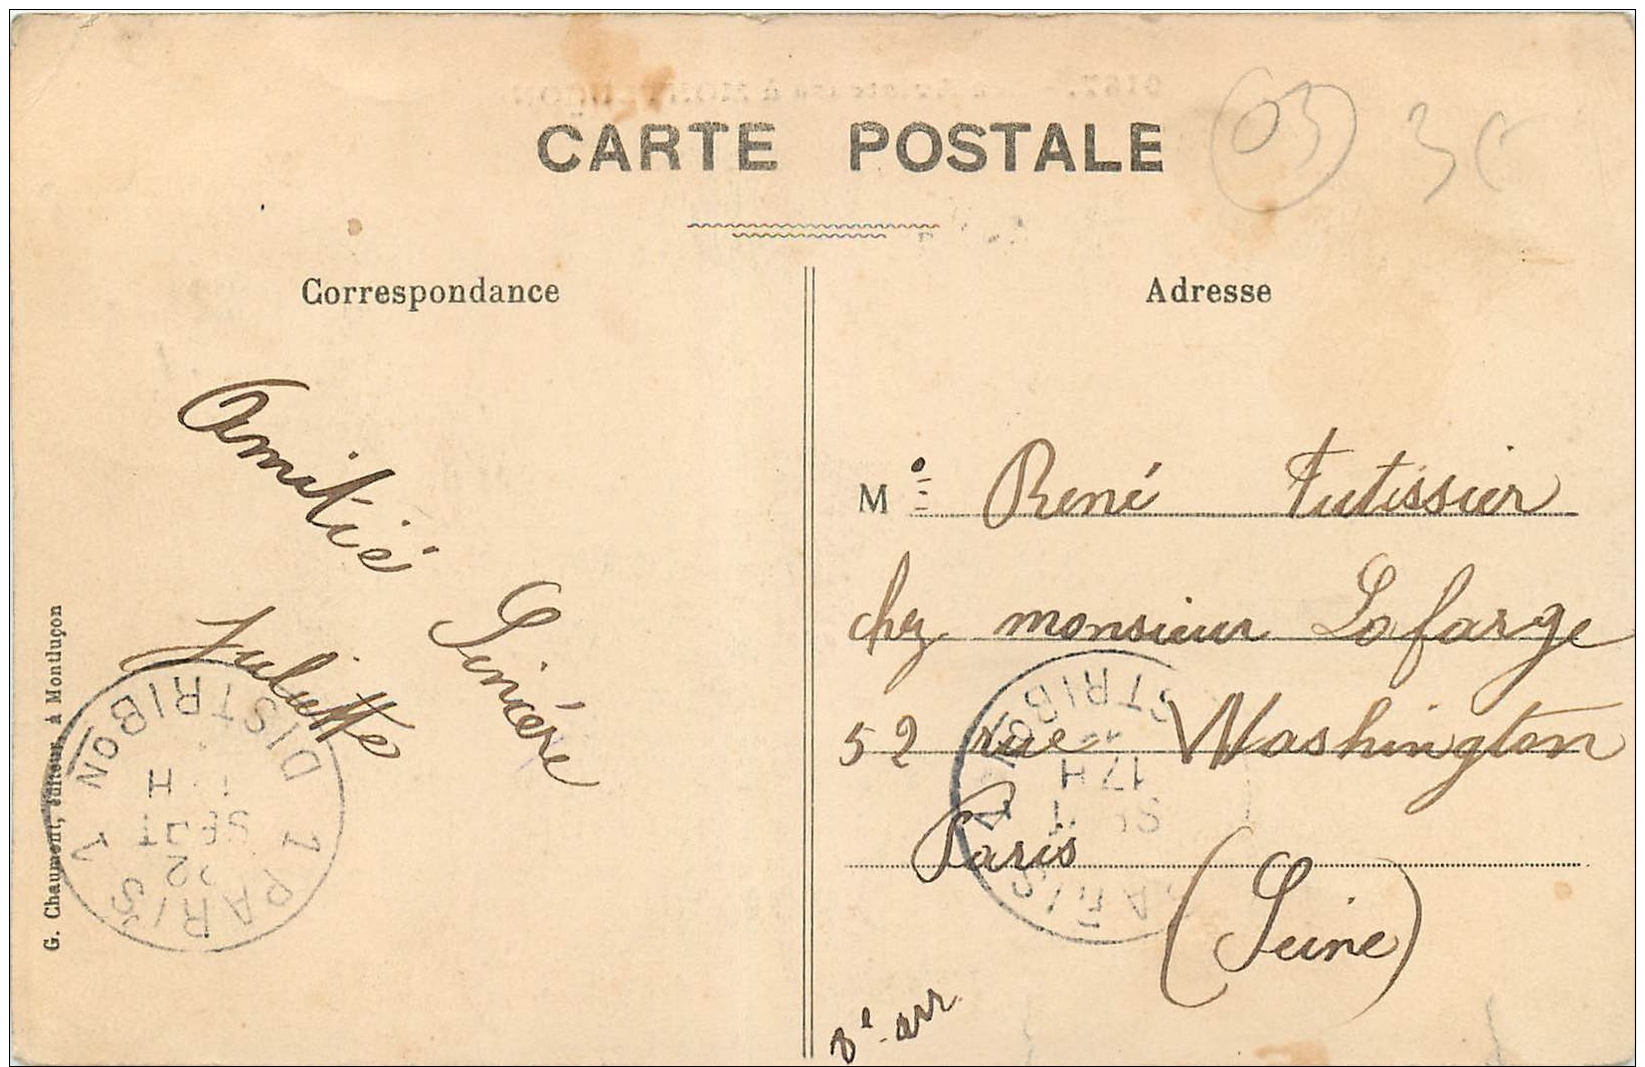 CARTE POSTALE
03
Correspondance
Adresse
Amitié
Sincère
Juliette
M
René Futissier
chez monsieur Lafarge
52 rue Washington
Paris
(Seine)
8e arr
G. Chaumont, éditeur, à Montluçon
PARIS DISTRIBON
22
SEPT
PARIS
17 H